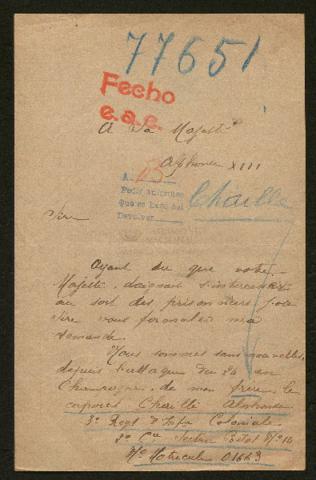 77651
Fecho
e.a.e.
A Sa Majesté
Alphonse XIII
A
Devolver
Chaillé
Sire
Ayant su que votre
Majesté daignait s'intéresser
au sort des prisonniers j'ose
Sire vous formuler ma
demande.
Nous sommes sans nouvelles
depuis l'attaque du 26 en
Champagne de mon frère le
caporal Chaillé Alphonse
3e Regt d'Infie Coloniale
3e Cie Section
No Matricule 01663